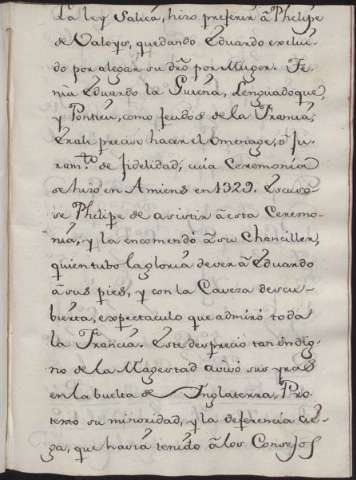 La ley Salica, hizo preferir â Phelipe
de Valoyo, quedando Eduardo exclui-
do por alegar su dro por Muger. Te-
nia Eduardo la Guiena, Lenguadoque,
y Pontieu, como feudos de la Francia,
Erale preciso hacer el Omenage, ô Ju-
ramto de fidelidad, cuia Ceremonia
se hizo en Amiens en 1329. Escuso-
se Phelipe de asistir â esta Ceremo-
nia, y la encomendó â su Chanciller,
quien tubo la gloria de ver â Eduardo
â sus pies, y con la Caveza descu-
bierta, expectaculo que admiró toda
la Francia. Este desprecio tan indig-
no de la Magestad avivó sus yras
en la buelta de Inglaterra, Pro-
texto su minoridad, y la deferencia cie-
ga, que havia tenido â los Consejos